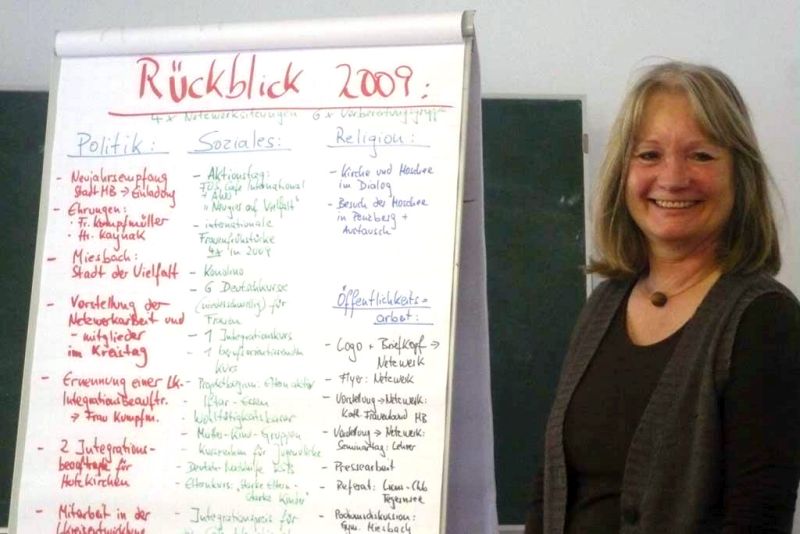 Rückblick 2009:
4x Netzwerksitzungen 6x Vorbereitungsgruppe
Politik:
- Neujahrsempfang
Stadt MB → Einladung
- Ehrungen:
· Fr. Kumpfmüller
· Hr. Kaynak
- Miesbach:
Stadt der Vielfalt
- Vorstellung der
Netzwerkarbeit und
- mitglieder
im Kreistag
- Ernennung einer LK-
Integrationsbeauftr.
→ Frau Kumpfm.
- 2 Integrations-
beauftragte für
Holzkirchen
- Mitarbeit in der
Soziales:
- Aktionstag:
Café International
"Neugier auf Vielfalt"
- internationale
Frauenfrühstücke
4x in 2009
- 6 Deutschkurse
für
Frauen
- 1 Integrationskurs
- 1 berufsorientierender
Kurs
- Projektbeginn: Eltern aktiv
- Iftar-Essen
- Mutter-Kind-Gruppen
für Jugendliche
- Deutsch-Nachhilfe
- Elternkurs: "Starke Eltern -
starke Kinder"
- Integrationspreis für
Religion:
- Kirche und Moschee
im Dialog
- Besuch der Moschee
in Penzberg +
Austausch
Öffentlichkeits-
arbeit:
- Logo + Briefkopf →
Netzwerk
- Flyer: Netzwerk
- Vorstellung → Netzwerk:
Kath. Frauenbund MB
- Vorstellung → Netzwerk:
Seminartag: Lehrer
- Pressearbeit
- Referat: Lions-Club
Tegernsee
- Podiumsdiskussion:
Gym. Miesbach